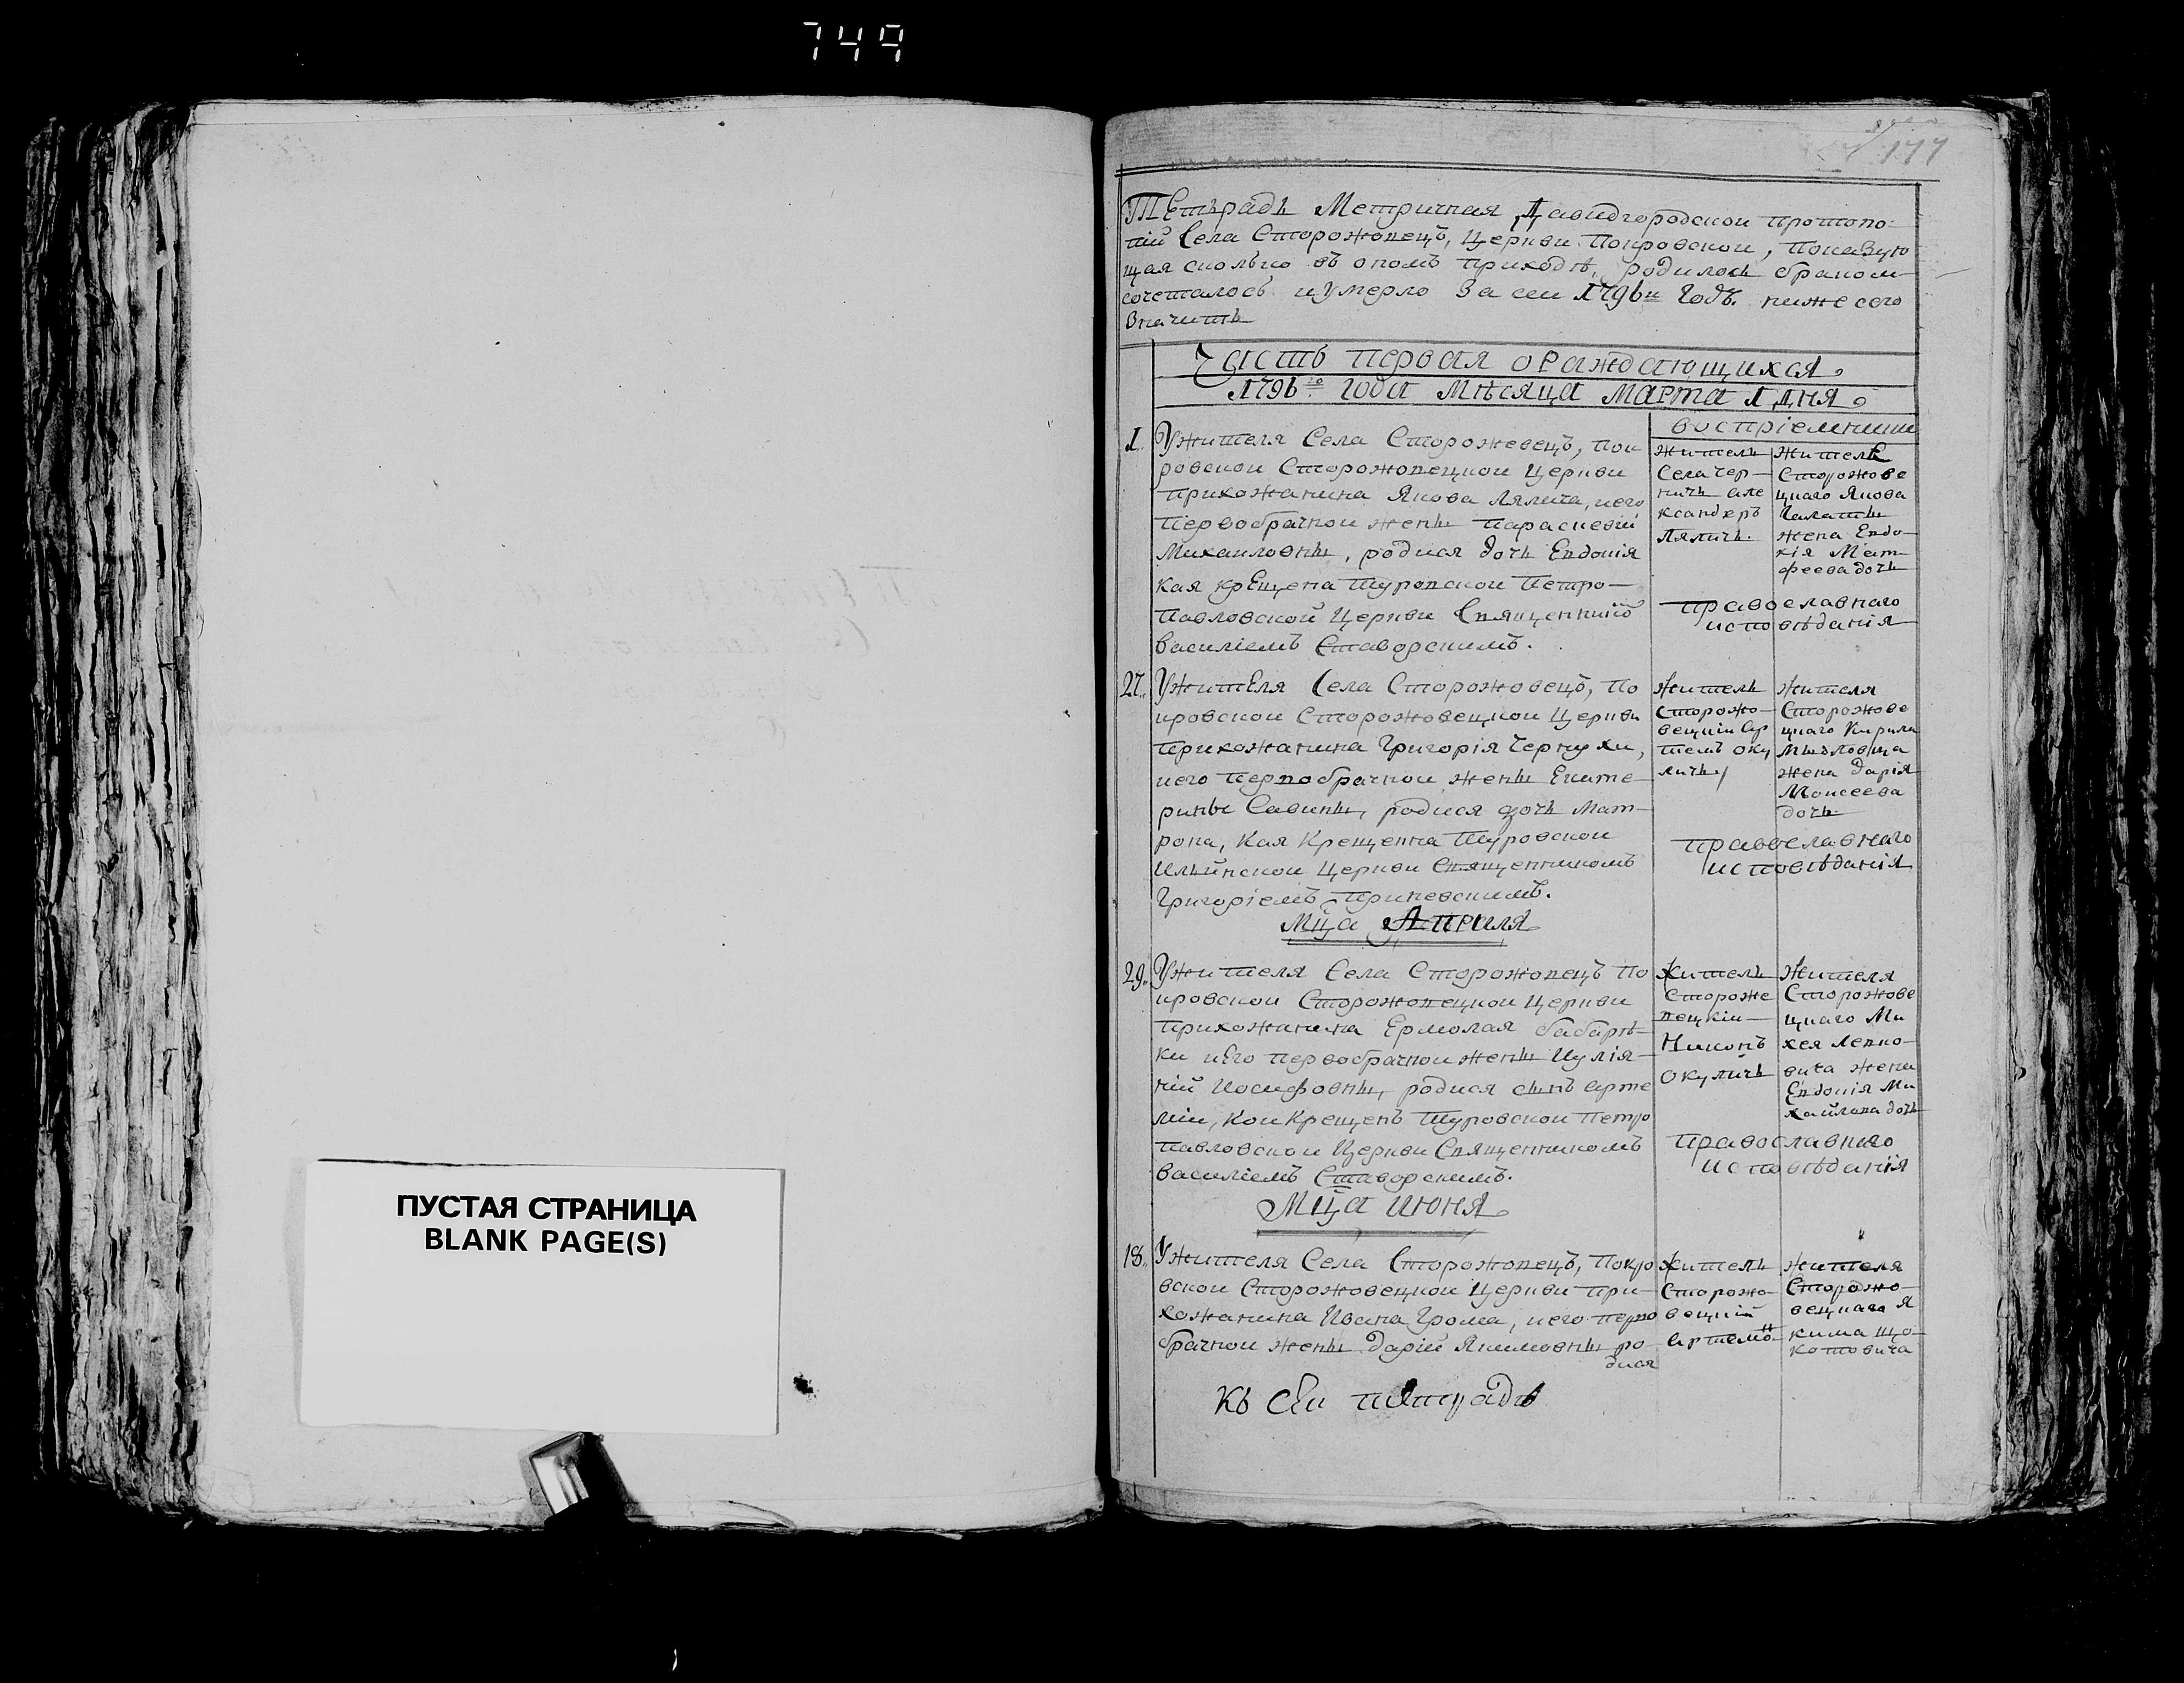 749
177
Тетьрадь Метричная, Давидгородской протопо-
пiи Села Сторожовецъ, Церкви Покровской, показую
щая сколько въ ономъ приходѣ, родилось браком
сочеталось и умерло за сеи 1796и годъ. ниже сего
Значитъ
Часть первая о раждающихся
1796го года мѣсяца марта 1 дня
воспрiемники
1. У жителя Села Сторожевецъ, Пок
ровской Сторожовецкой Церкви
прихожанина Якова Лялича, и его
первобрачной жены Параскевiи
Михаиловны, родися дочь Евдокiя
кая крещена Туровской Петро-
Павловской Церкви Священникō
Василiемъ Ставорскимъ.
житель
Села Чер-
ничь Але
ксандеръ
Ляличь.
жителя
Сторожове
цкаго Якова
жена Евдо-
кiя Мат-
феева дочь
православнаго
исповѣданiя
27. У жителя Села Сторожовецъ, По
кровской Сторожовецкой Церкви
прихожанина Григорiя Чернухи,
и его первобрачной жены Екате-
рины Савины, родися дочь Мат-
рона, кая крещенна Туровской
Ильинской Церкви Священникомъ
Григорiемъ Приневскимъ.
житель
Сторожо-
вецкiи Ар
темъ Оку
личь
жителя
Сторожове
цкаго Кирила
жена Дарiя
Моисеева
дочь
православнаго
исповѣданiя
Мца Априля
29. У жителя Села Сторожовецъ По
кровской Сторожовецкой Церкви
прихожанина Ермолая Бабарѣ-
ки и его первобрачной жены Иулiя-
нiи Иосифовны, родися сынъ Арте
мiи, кои крещенъ Туровской Петро
Павловской Церкви Священникомъ
Василiемъ Ставорскимъ.
житель
Стороже
вецкiи
Никонъ
Окуличь
жителя
Сторожове
цкаго Ми
хея Левко-
вича жена
Евдокiя Ми
хаилова дочь
православнаго
исповѣданiя
Мца июня
18. У жителя Села Сторожовецъ, Покро
вской Сторожовецкой Церкви при-
хожанина Ивана Грома, и его перво
брачной жены Дарiи Якимовны ро-
дися
житель
Сторожо-
вецкiй
Артемъ
жителя
Сторожо-
вецкаго Я
кима Що-
котовича
Къ сеи тетрадѣ
ПУСТАЯ СТРАНИЦА
BLANK PAGE(S)